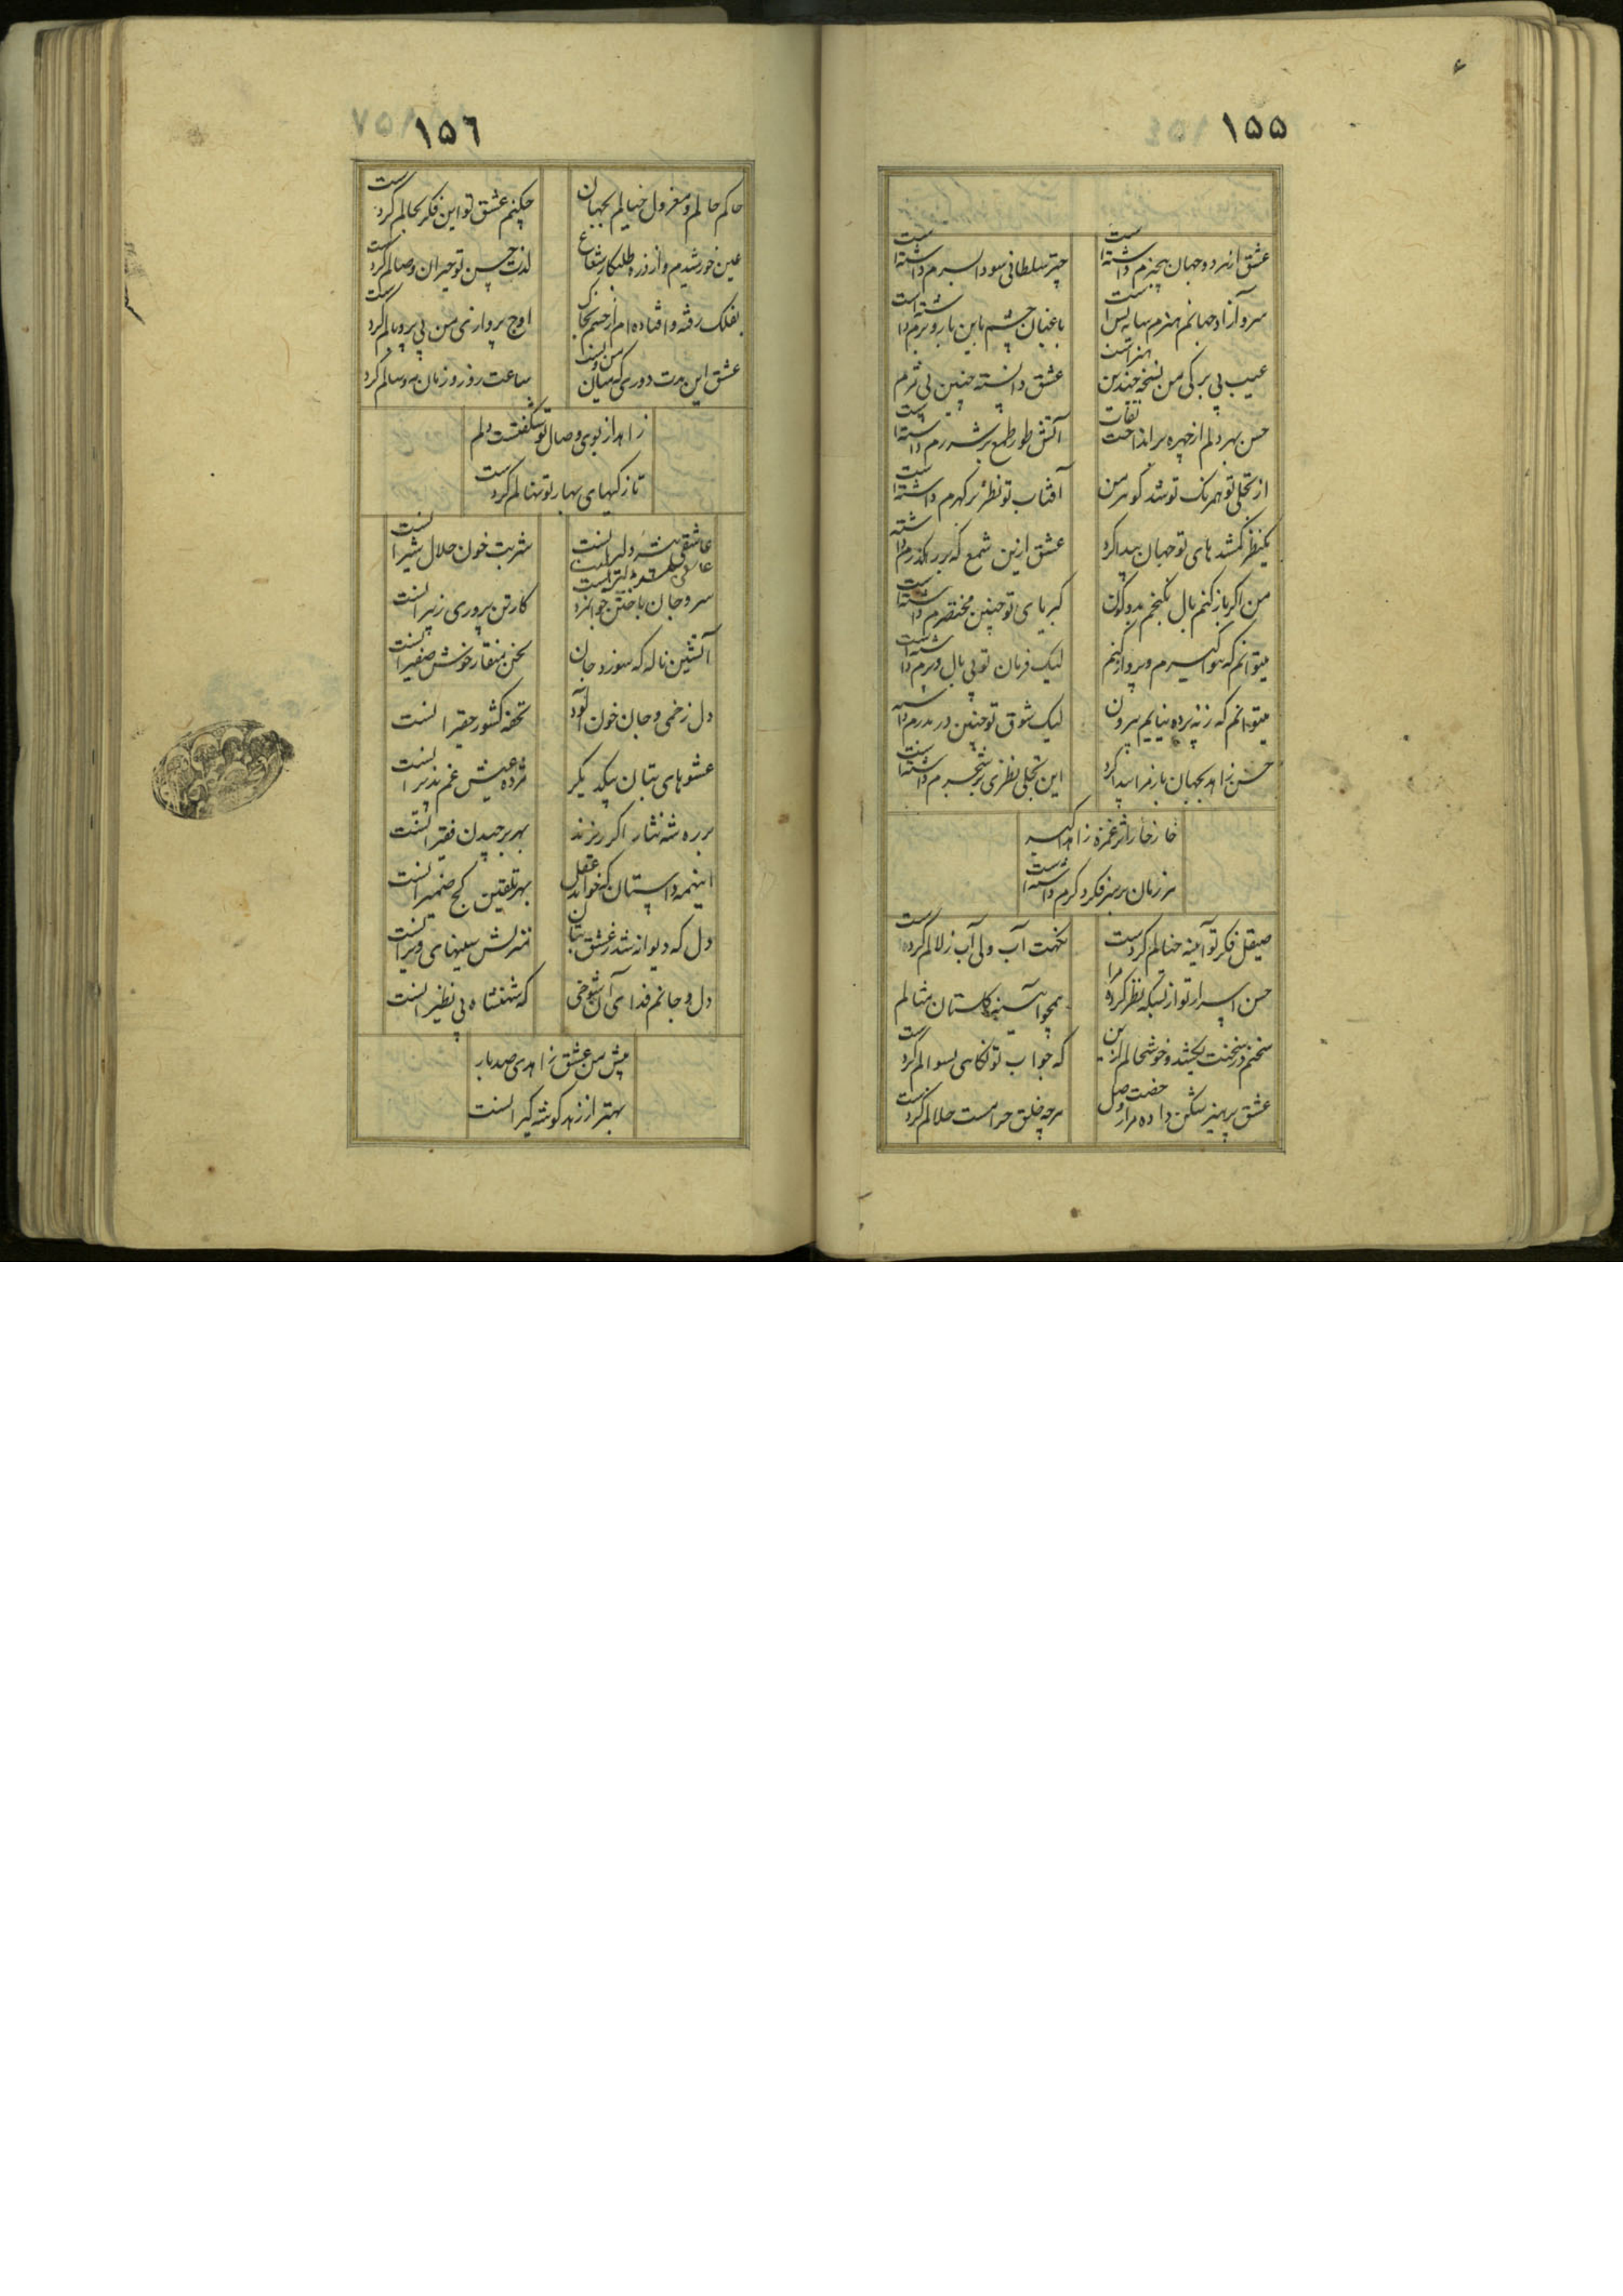 ۱۵۵
عشق از هر دو جهان بیخبرم داشته است
چتر سلطانی سودا بسرم داشته است
سرو آزاد جهانم هنرم سایه بس است
باغبان چشم باین بار و برم داشته است
عیب بی برکی من نسخه چندین هنر است
عشق دانسته چنین بی ثمرم داشته است
حسن بهر دلم از چهره برانداخت نقاب
آتش طور طمع بر شررم داشته است
از تجلی تو همرنک تو شد کوهر من
آفتاب تو نظر بر کهرم داشته است
یکنظر کمشدهای تو جهان پیدا کرد
عشق ازین شمع که بر رهکذرم داشته
من اکر باز کنم بال نکنجم بدو کون
کبریای تو چنین مختصرم داشته است
میتوانم که هوا کیرم و پرواز کنم
لیک فرمان تو بی بال و پرم داشته است
میتوانم که ز نه پرده نیایم بیرون
لیک شوق تو چنین در بدرم داشته
حسن زاهد بجهان باز مرا پیدا کرد
این تجلی نظری بر شجرم داشته است
خارخار اثر غمزه زاهد
هر زمان بر سر فکر دکرم داشته است
صیقل فکر تو آینه خیالم کردست
نکهت آب ولی آب زلالم کرده است
حسن اسرار تو از بسکه نظر کرده مرا
همچو آیینه کلستان مثالم
سخنم در سخنت بخشد و خوشحالم ازین
که جواب تو نکاهی بسوالم کردست
عشق پرهیز شکن داده مرا رخصت وصل
هرچه خلق حرامست حلالم کردست
۱۵٦
حاکم حالم و معزول خیالم بجهان
چکنم عشق تو این فکر بحالم کردست
عین خورشیدم و از ذره طلبکار شعاع
لذت حسن تو حیران وصالم کردست
بفلک رفته و افتاده ام از چشم
اوج پروازی من بی پر و بالم کردست
عشق این مدت دوری که میان من و تست
ساعت روز و زمان مه و سالم کرد
زاهد از بوی وصال تو شکفتست دلم
تازکیهای بهار تو نهالم کردست
عاشقی بیشه دلیرانست
شربت خون حلال شیرانست
سر و جان باختن جوانمرد
کار تن پروری ز پیرانست
آتشین ناله که سوزد جان
لحن منقار خوش صفیرانست
دل زخمی و جان خون آلود
تحفه کشور حقیرانست
عشوهای بتان بیکدیکر
مژده عیش غم پذیرانست
بر ره شه نثار اکر ریزند
بهر برچیدن فقیرانست
اینهمه داستان که خواند عقل
بهر تلقین کج ضمیرانست
دل که دیوانه شد ز عشق بتان
منزلش سینهای ویرانست
دل و جانم فدای آن شوخی
که شهنشاه بی نظیرانست
پیش من عشق زاهدی صد بار
بهتر از زهد کوشه کیرانست